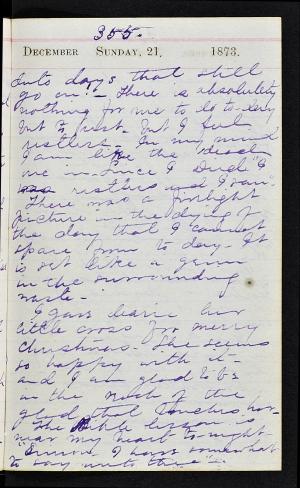 355.
DECEMBER SUNDAY, 21, 1873.
into days that still
go on." There is absolutely
nothing for me to do to-day
but to rest. but I feel
restless. In my mind
I am like the
one in "I
was restless and I ran".
There was a firelight
picture in the dying of
the day that I cannot
spare from to day. It
is set like a gem
in the surrounding
waste.
I gave her
little cross for merry
Christmas. She seems
so happy with it
and I am glad to be
in the midst of the
glad that touches her.
The Bible lesson is
near my heart to-night.
"Simon, I have somewhat
to say unto thee".